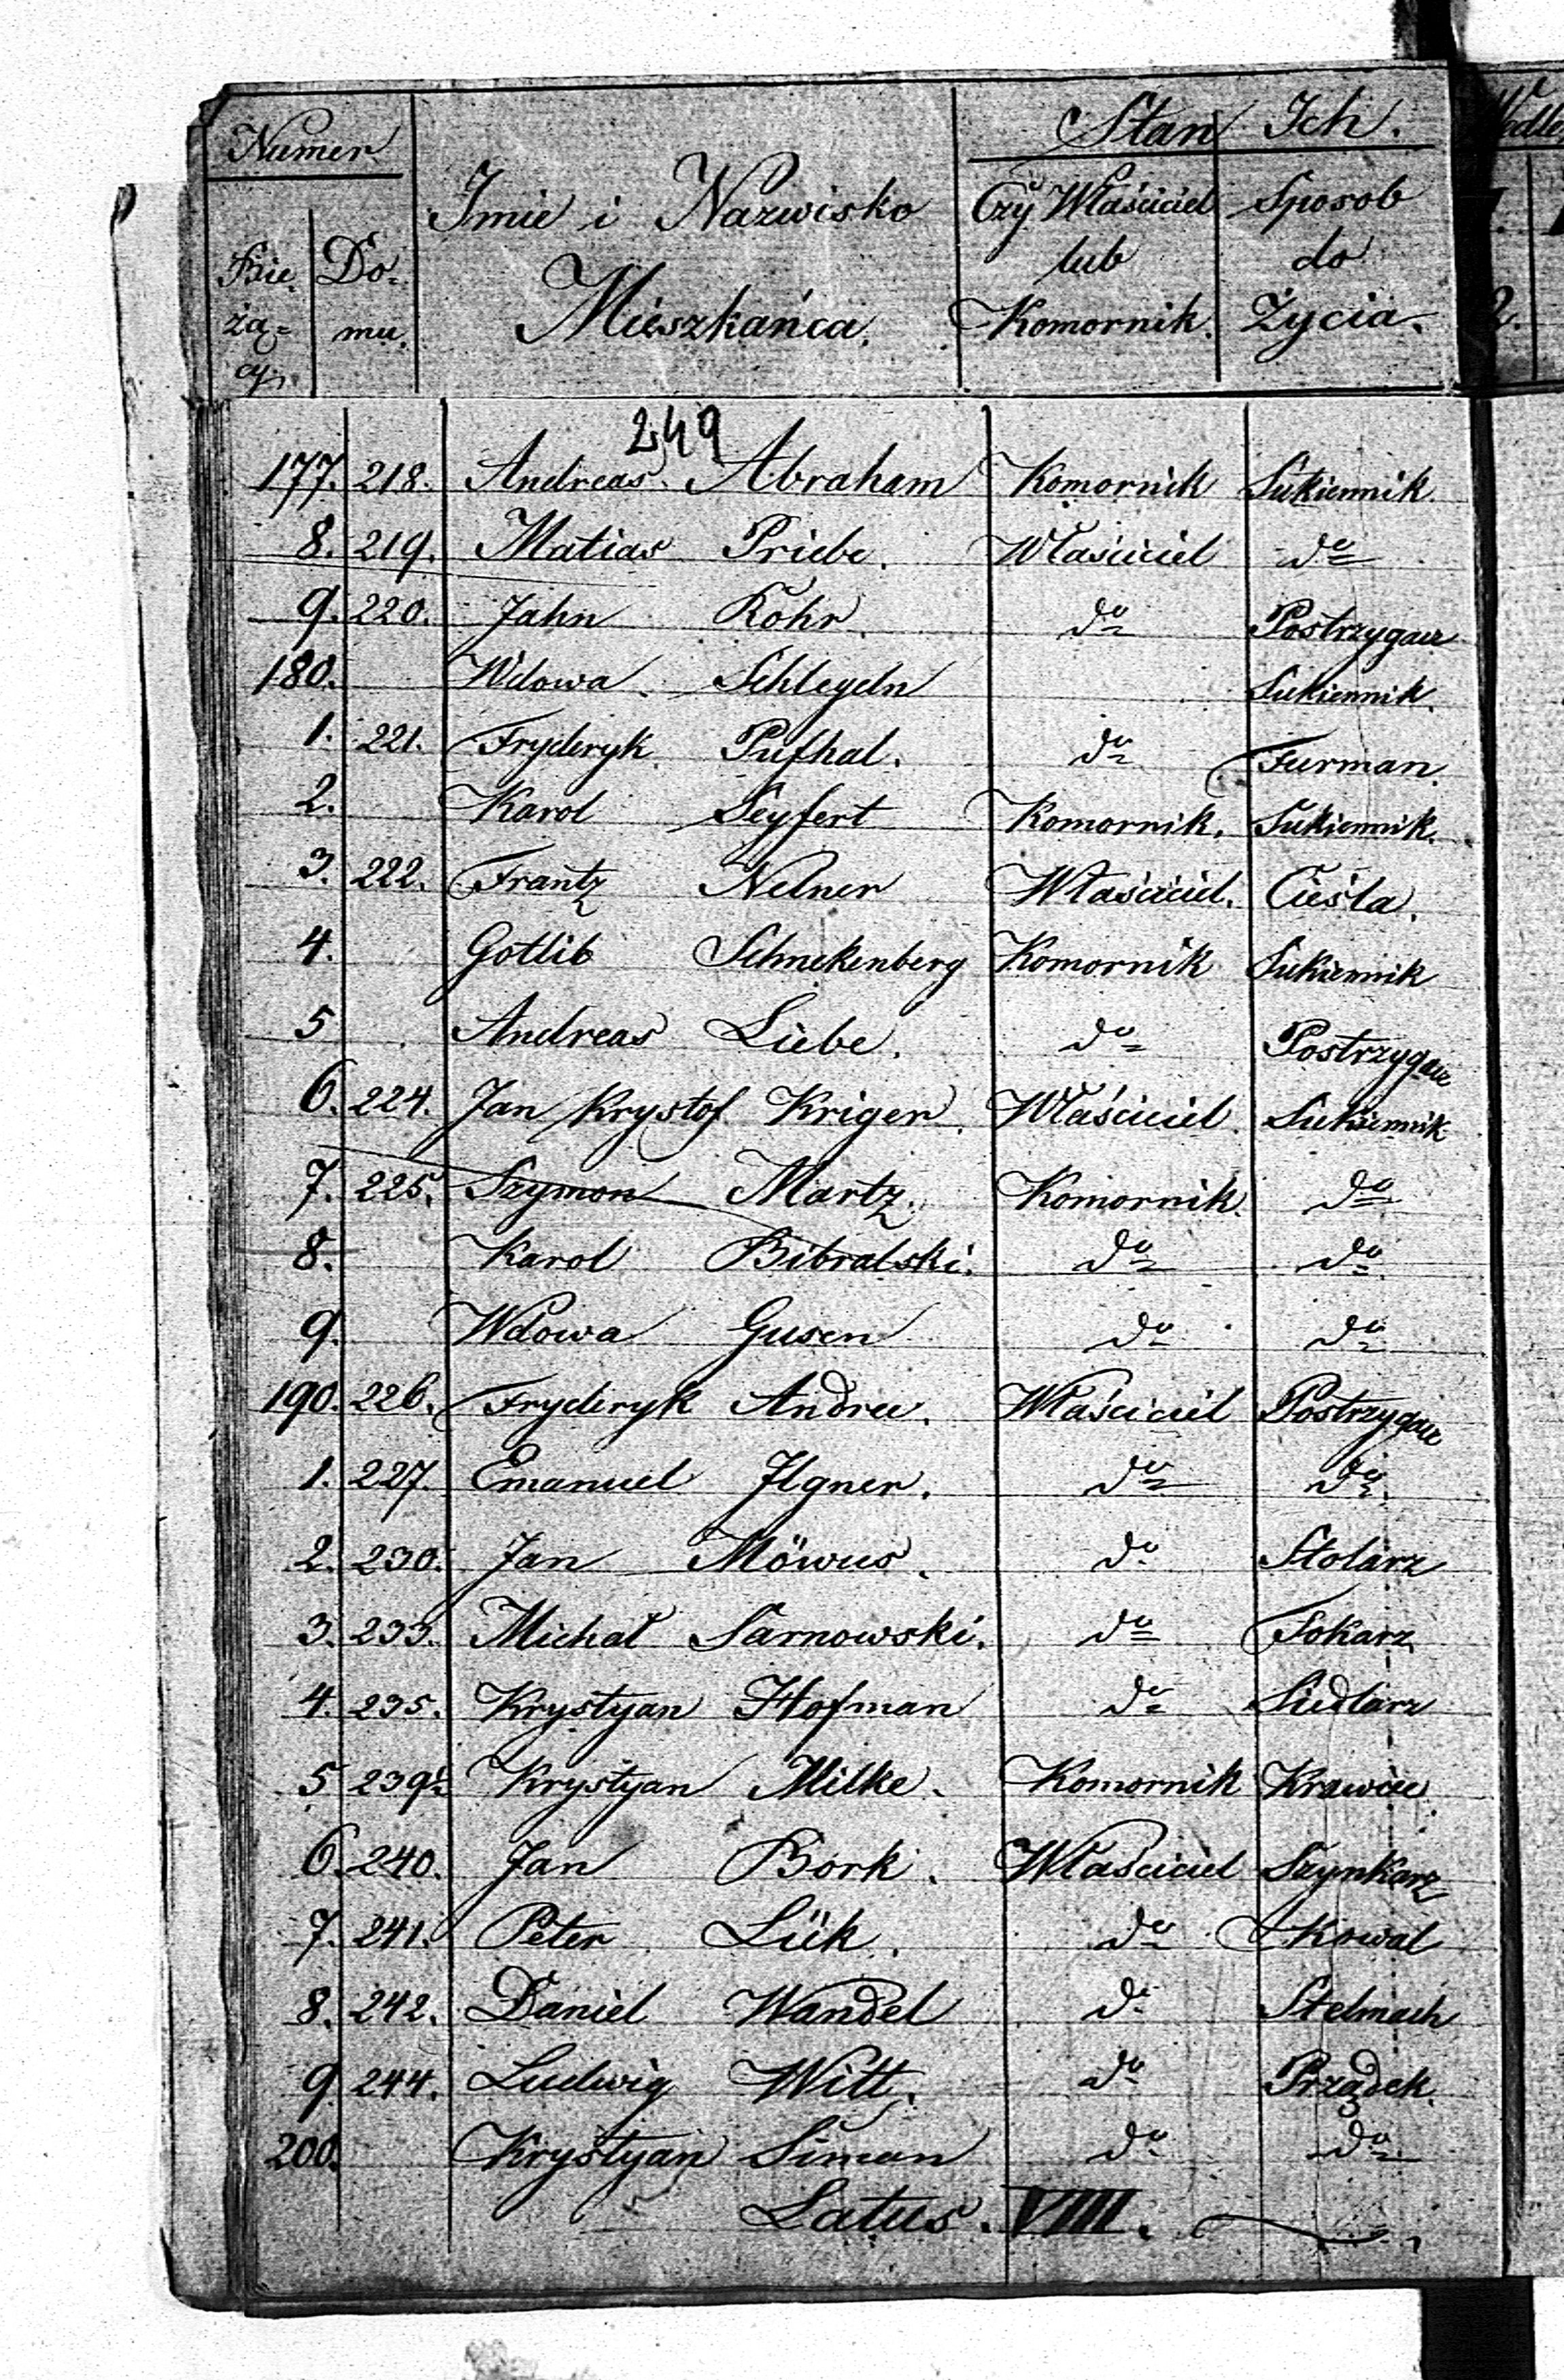 Numer Stan Ich.
Imie i Nazwisko Czy Właściciel Sposob
Bie= Do= lub do
żą= mu. Mieszkańca. Komornik. Życia.
cy.
249
177. 218. Andreas Abraham Komornik Sukiennik.
8. 219. Matias Priebe. Właściciel do
9. 220. Jahn Rohr. do Postrzygacz
180. Wdowa Schlegeln Sukiennik.
1. 221. Fryderyk Pufhal. do Furman.
2. Karol Seyfert Komornik. Sukiennik.
3. 222. Frantz Nelner Właściciel. Cieśla.
4. Gotlib Schnekenberg Komornik Sukiennik
5 Andreas Liebe. do Postrzygacz
6. 224. Jan Krystof Kriger. Właściciel. Sukiennik
7. 225. Szymon Martz. Komornik. do
8. Karol Bibralski. do do
9. Wdowa Gusen do do
190. 226. Fryderyk Andree. Właściciel Postrzygacz
1. 227. Emanuel Ilgner. do do
2. 230. Jan Möwus. do Stolarz
3. 233. Michał Sarnowski. do Tokarz
4. 235. Krystyan Hofman do Siedlarz
5 239½ Krystyan Milke. Komornik Krawiec
6. 240. Jan Bork. Właściciel Szynkarz
7. 241. Peter Lük. do Kowal
8. 242. Daniel Wandel do Stelmach
9 244. Ludwig Witt. do Prządek.
200. Krystyan Siman do do
Latus. VIII.